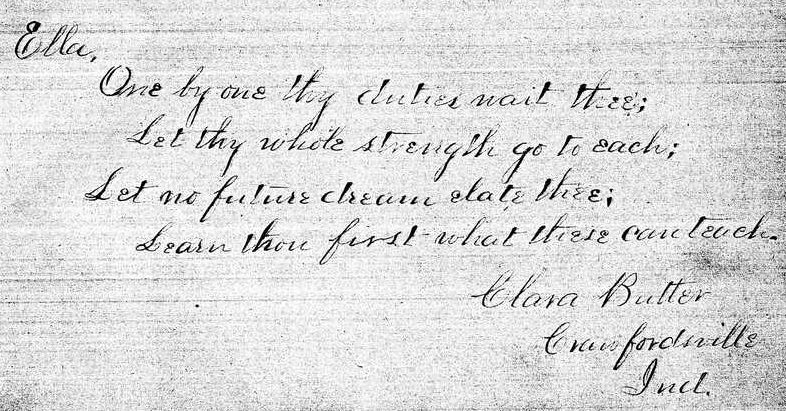 Ella,
One by one thy duties wait thee;
Let thy whole strength go to each;
Let no future dream elate thee;
Learn thou first what these can teach.
Clara Butler
Crawfordsville
Ind.